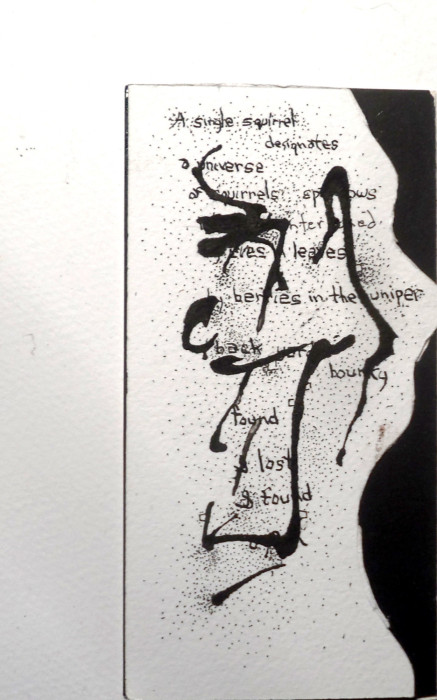 A single squirrel
designates
a universe
of squirrels sparrows
leaves
by berries in the juniper
back
found
lost
& found